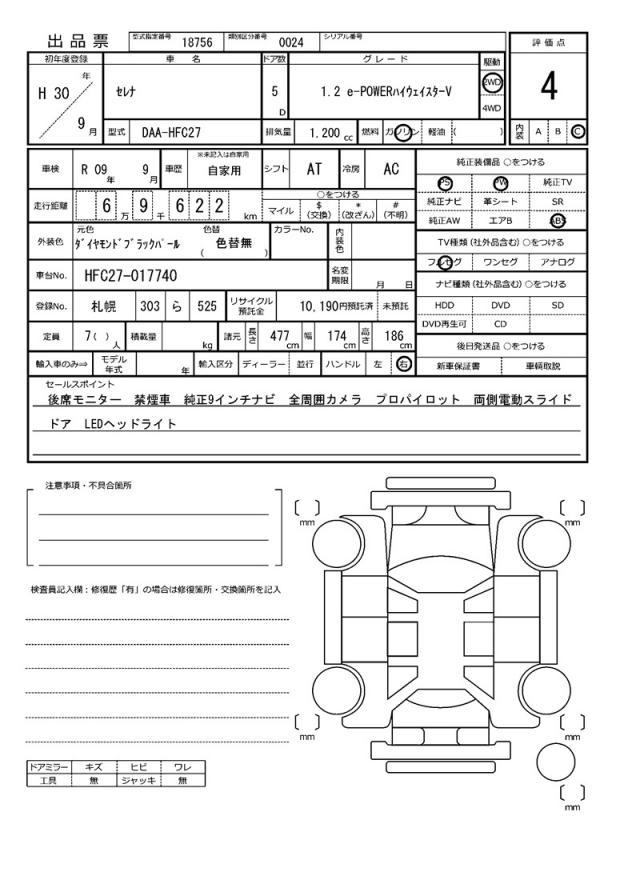 出品票 型式指定番号 18756 類別区分番号 0024 シリアル番号
評価点
4
内装 A B C
初年度登録 車名 ドア数 グレード 駆動
H 30 年 9 月 セレナ 5 D 1.2 e-POWERハイウェイスターV 2WD 4WD
型式 DAA-HFC27 排気量 1,200 cc 燃料 ガソリン 軽油 ( )
車検 R 09 年 9 月 車歴 ※未記入は自家用 自家用 シフト AT 冷房 AC
走行距離 6 万 9 千 6 2 2 km ○をつける マイル $ (交換) * (改ざん) # (不明)
外装色 元色 ダイヤモンドブラックパール 色替 ( 色替無 ) カラーNo. 内装色
車台No. HFC27-017740 名変期限 月 日
登録No. 札幌 303 ら 525 リサイクル預託金 10,190円預託済 未預託
定員 7( )人 積載量 kg 諸元 長さ 477cm 幅 174cm 高さ 186cm
輸入車のみ⇒ モデル年式 年 輸入区分 ディーラー 並行 ハンドル 左 右
純正装備品 ○をつける
PS PW 純正TV
純正ナビ 革シート SR
純正AW エアB ABS
TV種類 (社外品含む) ○をつける
フルセグ ワンセグ アナログ
ナビ種類 (社外品含む) ○をつける
HDD DVD SD
DVD再生可 CD
後日発送品 ○をつける
新車保証書 車輌取説
セールスポイント
後席モニター 禁煙車 純正9インチナビ 全周囲カメラ プロパイロット 両側電動スライド
ドア LEDヘッドライト
注意事項・不具合箇所
検査員記入欄：修復歴「有」の場合は修復箇所・交換箇所を記入
ドアミラー キズ ヒビ ワレ
工具 無 ジャッキ 無
[ ] mm
[ ] mm
[ ] mm
[ ] mm
[ ] mm